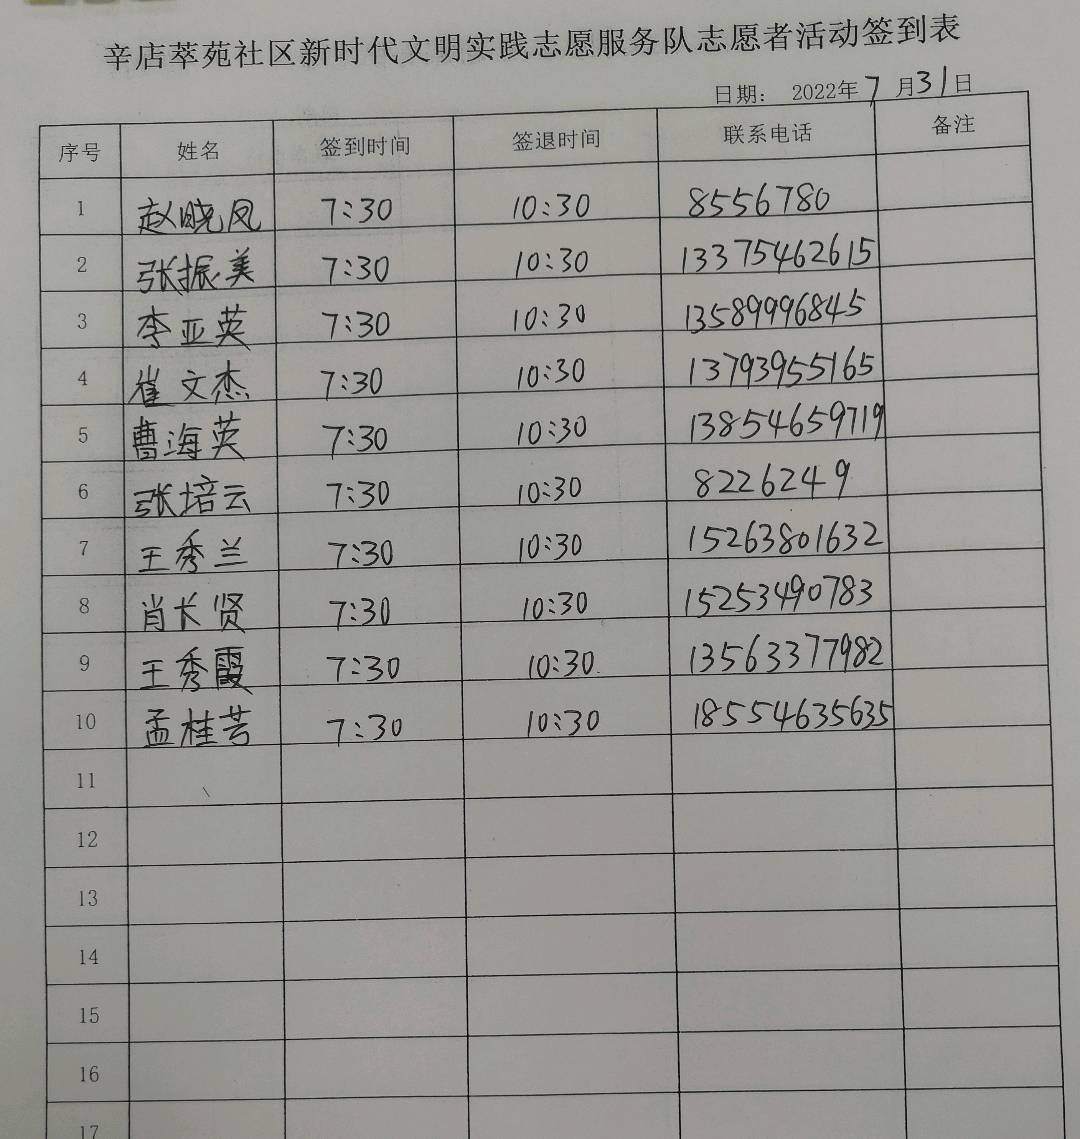 辛店萃苑社区新时代文明实践志愿服务队志愿者活动签到表
日期： 2022年7月31日
序号 姓名 签到时间 签退时间 联系电话 备注
1 赵晓凤 7:30 10:30 8556780
2 张振美 7:30 10:30 13375462615
3 李亚英 7:30 10:30 13589996845
4 崔文杰 7:30 10:30 13793955165
5 曹海英 7:30 10:30 13854659719
6 张培云 7:30 10:30 8226249
7 王秀兰 7:30 10:30 15263801632
8 肖长贤 7:30 10:30 15253490783
9 王秀霞 7:30 10:30 13563377982
10 孟桂芳 7:30 10:30 18554635635
11
12
13
14
15
16
17